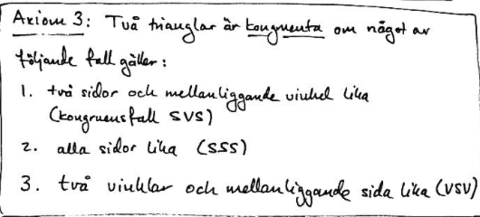 Axiom 3: Två trianglar är kongruenta om något av
följande fall gäller:
1. två sidor och mellanliggande vinkel lika
(kongruensfall SVS)
2. alla sidor lika (SSS)
3. två vinklar och mellanliggande sida lika (VSV)